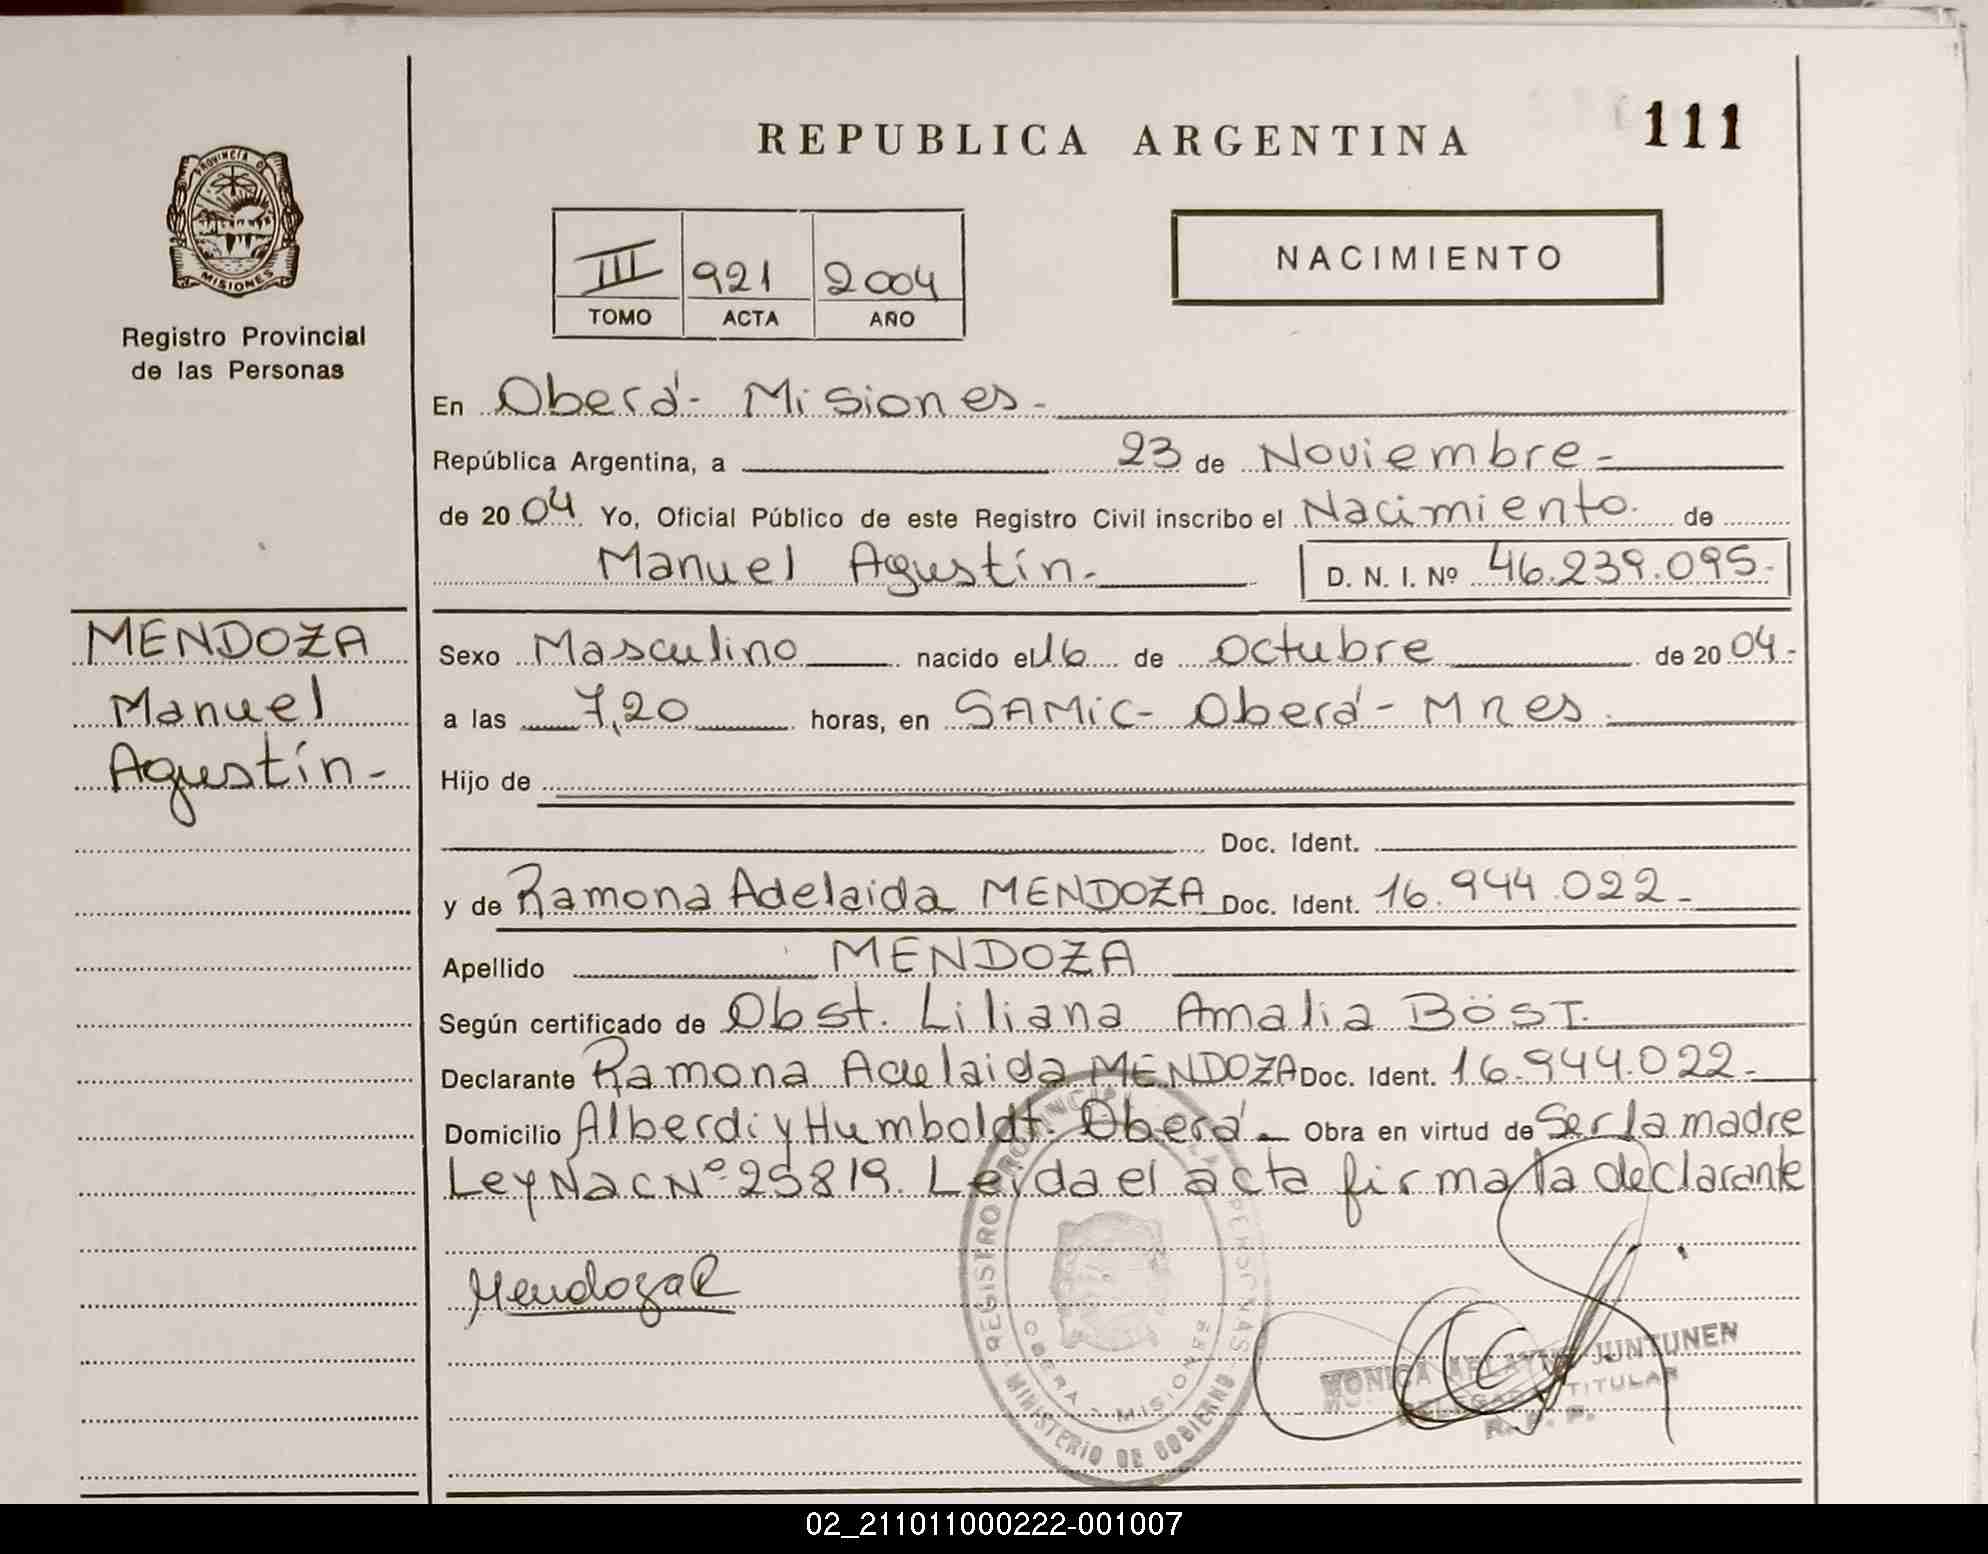 REPUBLICA ARGENTINA
111
PROVINCIA DE
MISIONES
Registro Provincial
de las Personas
III 921 2004
TOMO ACTA AÑO
NACIMIENTO
En Oberá- Misiones-
República Argentina, a 23 de Noviembre-
de 2004 Yo, Oficial Público de este Registro Civil inscribo el Nacimiento de
Manuel Agustín.- D. N. I. Nº 46.239.095.-
MENDOZA
Manuel
Agustín-
Sexo Masculino nacido el 16 de Octubre de 2004.-
a las 7,20 horas, en SAMIC- Oberá- Mnes.
Hijo de
Doc. Ident.
y de Ramona Adelaida MENDOZA Doc. Ident. 16.944.022.-
Apellido MENDOZA
Según certificado de Obst. Liliana Amalia BÖST.
Declarante Ramona Adelaida MENDOZA Doc. Ident. 16.944.022.-
Domicilio Alberdi y Humboldt. Oberá.- Obra en virtud de Ser la madre
Ley Nac Nº 25819. Leída el acta firma la declarante
Mendoza R
REGISTRO PROVINCIAL PERSONAS
MINISTERIO DE GOBIERNO
OBERA - MISIONES
MONICA JUNTUNEN
TITULAR
R. P. P.
02_211011000222-001007